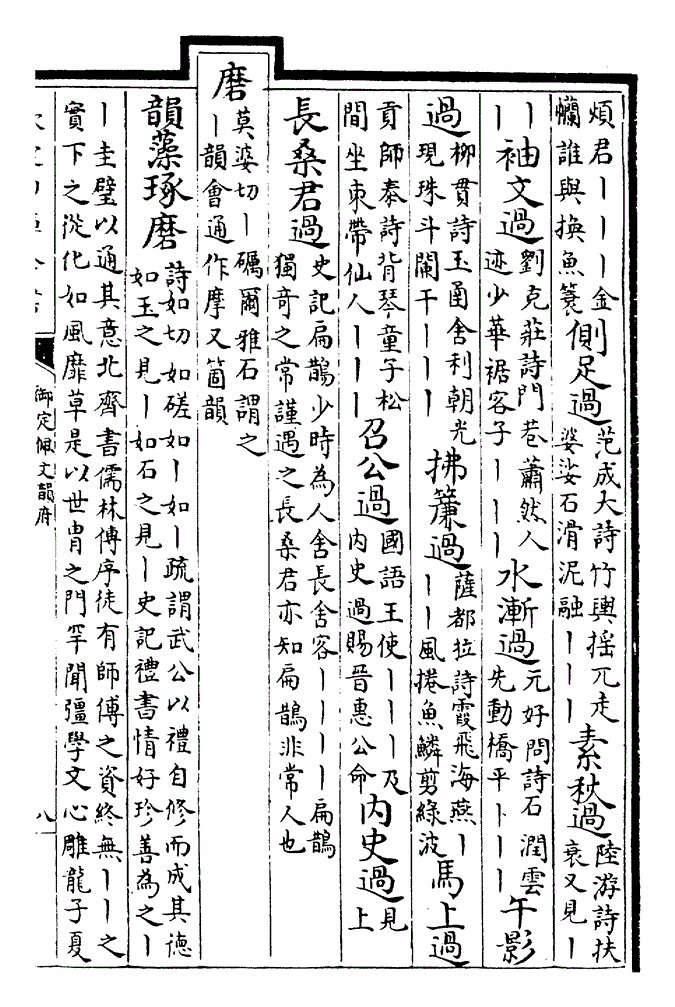 煩君丨丨丨金
幱誰與換魚簑
側足過
范成大詩竹輿揺兀走
婆娑石滑泥融丨丨丨
素秋過
陸游詩扶
衰又見丨
丨
丨
袖文過
劉克莊詩門巷蕭然人
迹少華裾客子丨丨丨
水漸過
元好問詩石潤雲
先動橋平丨丨丨
午影
過
柳貫詩玉函舍利朝光
現珠斗闌干丨丨丨
拂簾過
薩都拉詩霞飛海燕丨
丨丨風捲魚鱗剪綠波
馬上過
貢師泰詩背琴童子松
間坐束帶仙人丨丨丨
召公過
國語王使丨丨丨及
内史過賜晉惠公命
内史過
見
上
長桑君過
史記扁鵲少時為人舍長舍客丨丨丨丨扁鵲
獨奇之常謹遇之長桑君亦知扁鵲非常人也
磨
莫婆切丨礪爾雅石謂之
丨韻會通作摩又箇韻
韻藻琢磨
詩如切如磋如丨如丨疏謂武公以禮自修而成其德
如玉之見丨如石之見丨史記禮書情好珍善為之丨
丨圭璧以通其意北齊書儒林傳序徒有師傅之資終無丨丨之
實下之從化如風靡草是以世胄之門罕聞彊學文心雕龍子夏
御定佩文韻府
八